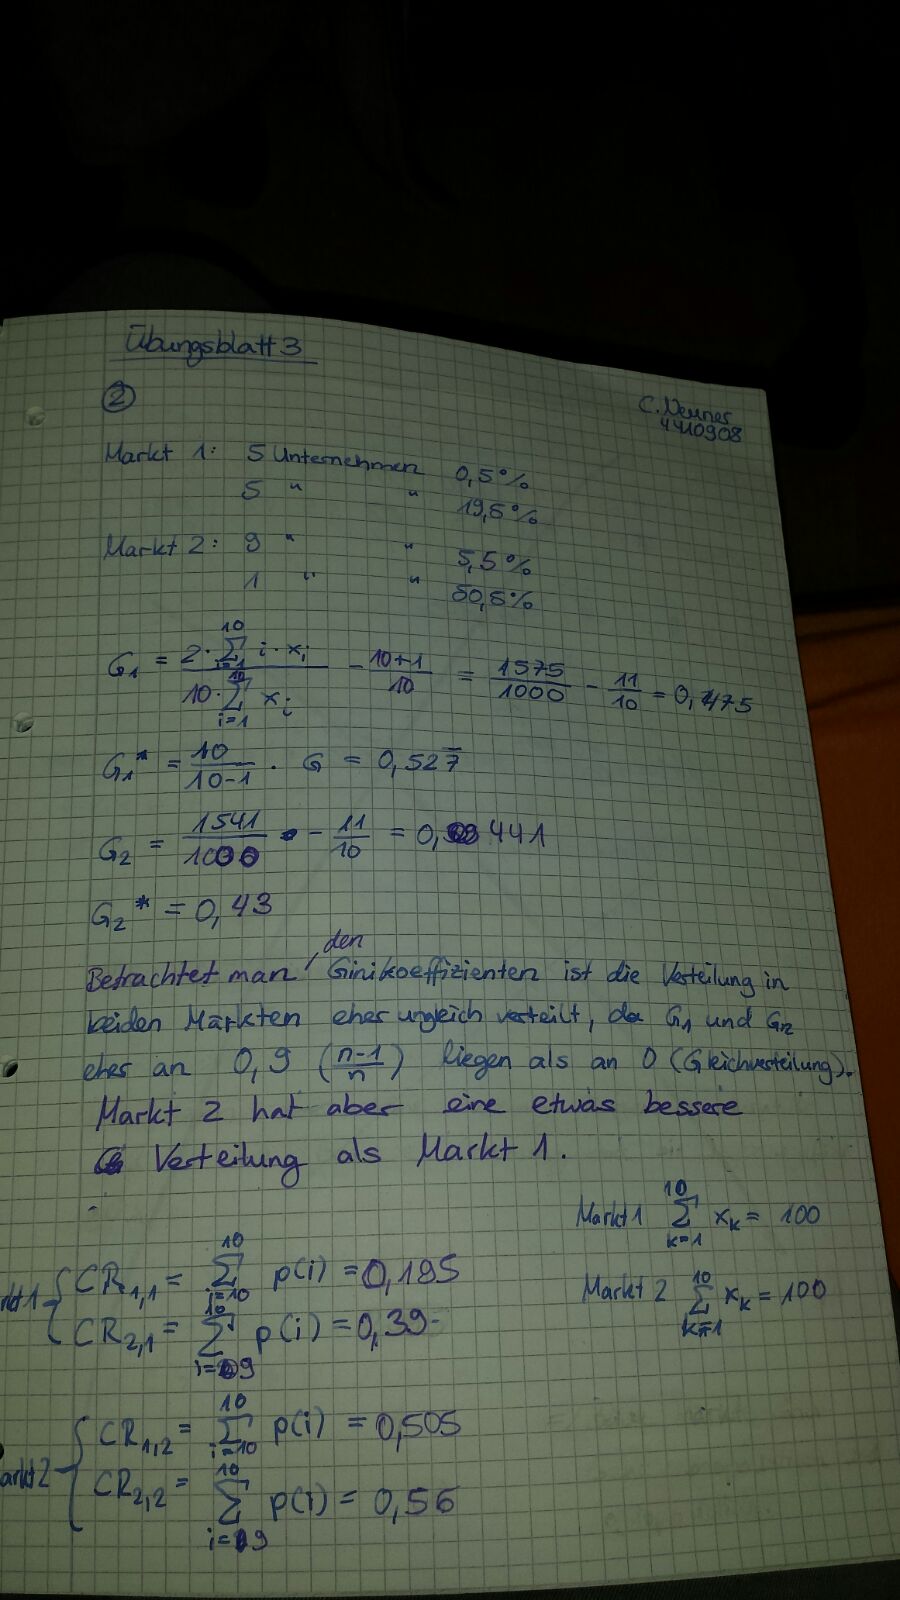 Übungsblatt 3
②
C. Neuner
4410908
Markt 1: 5 Unternehmen 0,5%
5 " " 19,5%
Markt 2: 9 " " 5,5%
1 " " 50,5%
G₁ = (2 · Σ_{i=1}^{10} i · xᵢ) / (10 · Σ_{i=1}^{10} xᵢ) - (10+1)/10 = 1575/1000 - 11/10 = 0,475
G₁* = 10/(10-1) · G = 0,527̅
G₂ = 1541/1000 - 11/10 = 0,441
G₂* = 0,43
Betrachtet man, den Ginikoeffizienten ist die Verteilung in
beiden Märkten eher ungleich verteilt, da G₁ und G₂
eher an 0,9 (n-1/n) liegen als an 0 (Gleichverteilung).
Markt 2 hat aber eine etwas bessere
Verteilung als Markt 1.
Markt 1 Σ_{k=1}^{10} xₖ = 100
Markt 2 Σ_{k=1}^{10} xₖ = 100
rkt 1 { CR₁,₁ = Σ_{i=10}^{10} p(i) = 0,195
CR₂,₁ = Σ_{i=9}^{10} p(i) = 0,39
arkt 2 { CR₁,₂ = Σ_{i=10}^{10} p(i) = 0,505
CR₂,₂ = Σ_{i=9}^{10} p(i) = 0,56